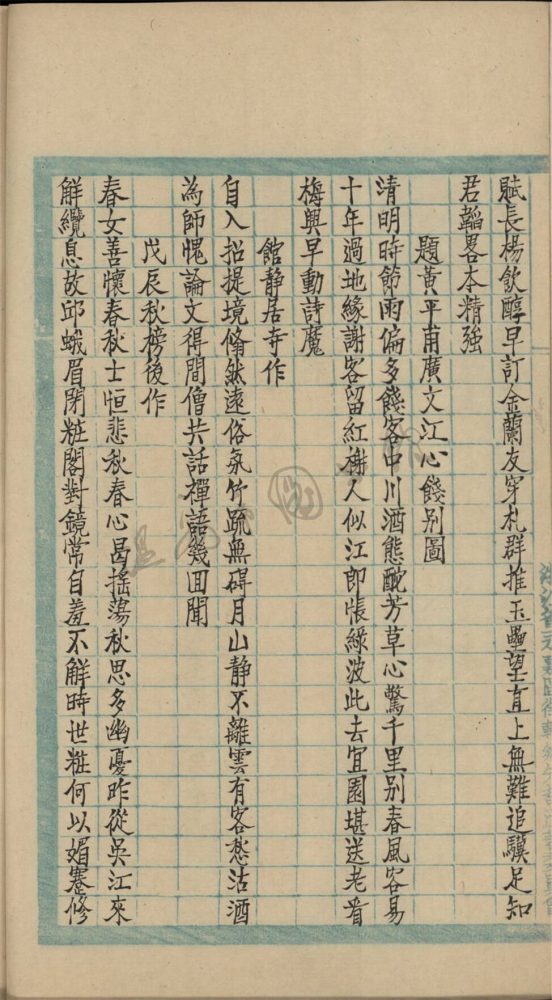 賦長楊飲醇早訂金蘭友穿札群推玉壘望直上無難追驥足知
君韜畧本精強
題黃平甫廣文江心餞别圖
清明時節雨偏多餞客中川酒態酡芳草心驚千里别春風容易
十年過地緣謝客留紅榭人似江郎悵綠波此去宜園堪送老看
梅興早動詩魔
館静居寺作
自入招提境翛然遠俗氛竹疏無碍月山静不離雲有客愁沽酒
為師愧論文得間僧共話禪語幾回聞
戊辰秋榜後作
春女善懷春秋士恒悲秋春心曷摇蕩秋思多幽憂昨從吳江來
解纜息故邱蛾眉閉粧閣對鏡常自羞不解時世粧何以媚蹇修